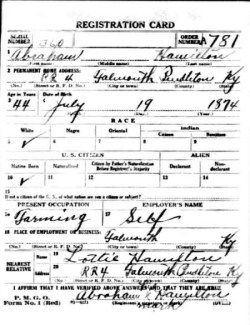 REGISTRATION CARD
SERIAL NUMBER 360 ORDER NUMBER A781
1 Abraham Hamilton
(First name) (Middle name) (Last name)
2 PERMANENT HOME ADDRESS:
RR 4 Falmouth Pendleton Ky
(No.) (Street or R. F. D. No.) (City or town) (County) (State)
Age in Years Date of Birth
44 July 19 1874
(Month) (Day) (Year)
RACE
White Negro Oriental Indian
Citizen Noncitizen
5 ✓ 6 7 8 9
U. S. CITIZEN ALIEN
Native Born Naturalized Citizen by Father's Naturalization Before Registrant's Majority Declarant Non-declarant
10 ✓ 11 12 13 14
15 If not a citizen of the U. S., of what nation are you a citizen or subject?
PRESENT OCCUPATION EMPLOYER'S NAME
Farming Self
18 PLACE OF EMPLOYMENT OR BUSINESS:
Falmouth Ky
(No.) (Street or R. F. D. No.) (City or town) (County) (State)
NEAREST RELATIVE Name 19 Lottie Hamilton
Address 20 RR4 Falmouth Pendleton Ky
(No.) (Street or R. F. D. No.) (City or town) (County) (State)
I AFFIRM THAT I HAVE VERIFIED ABOVE ANSWERS AND THAT THEY ARE TRUE
P. M. G. O.
Form No. 1 (Red) Abraham x Hamilton
mark